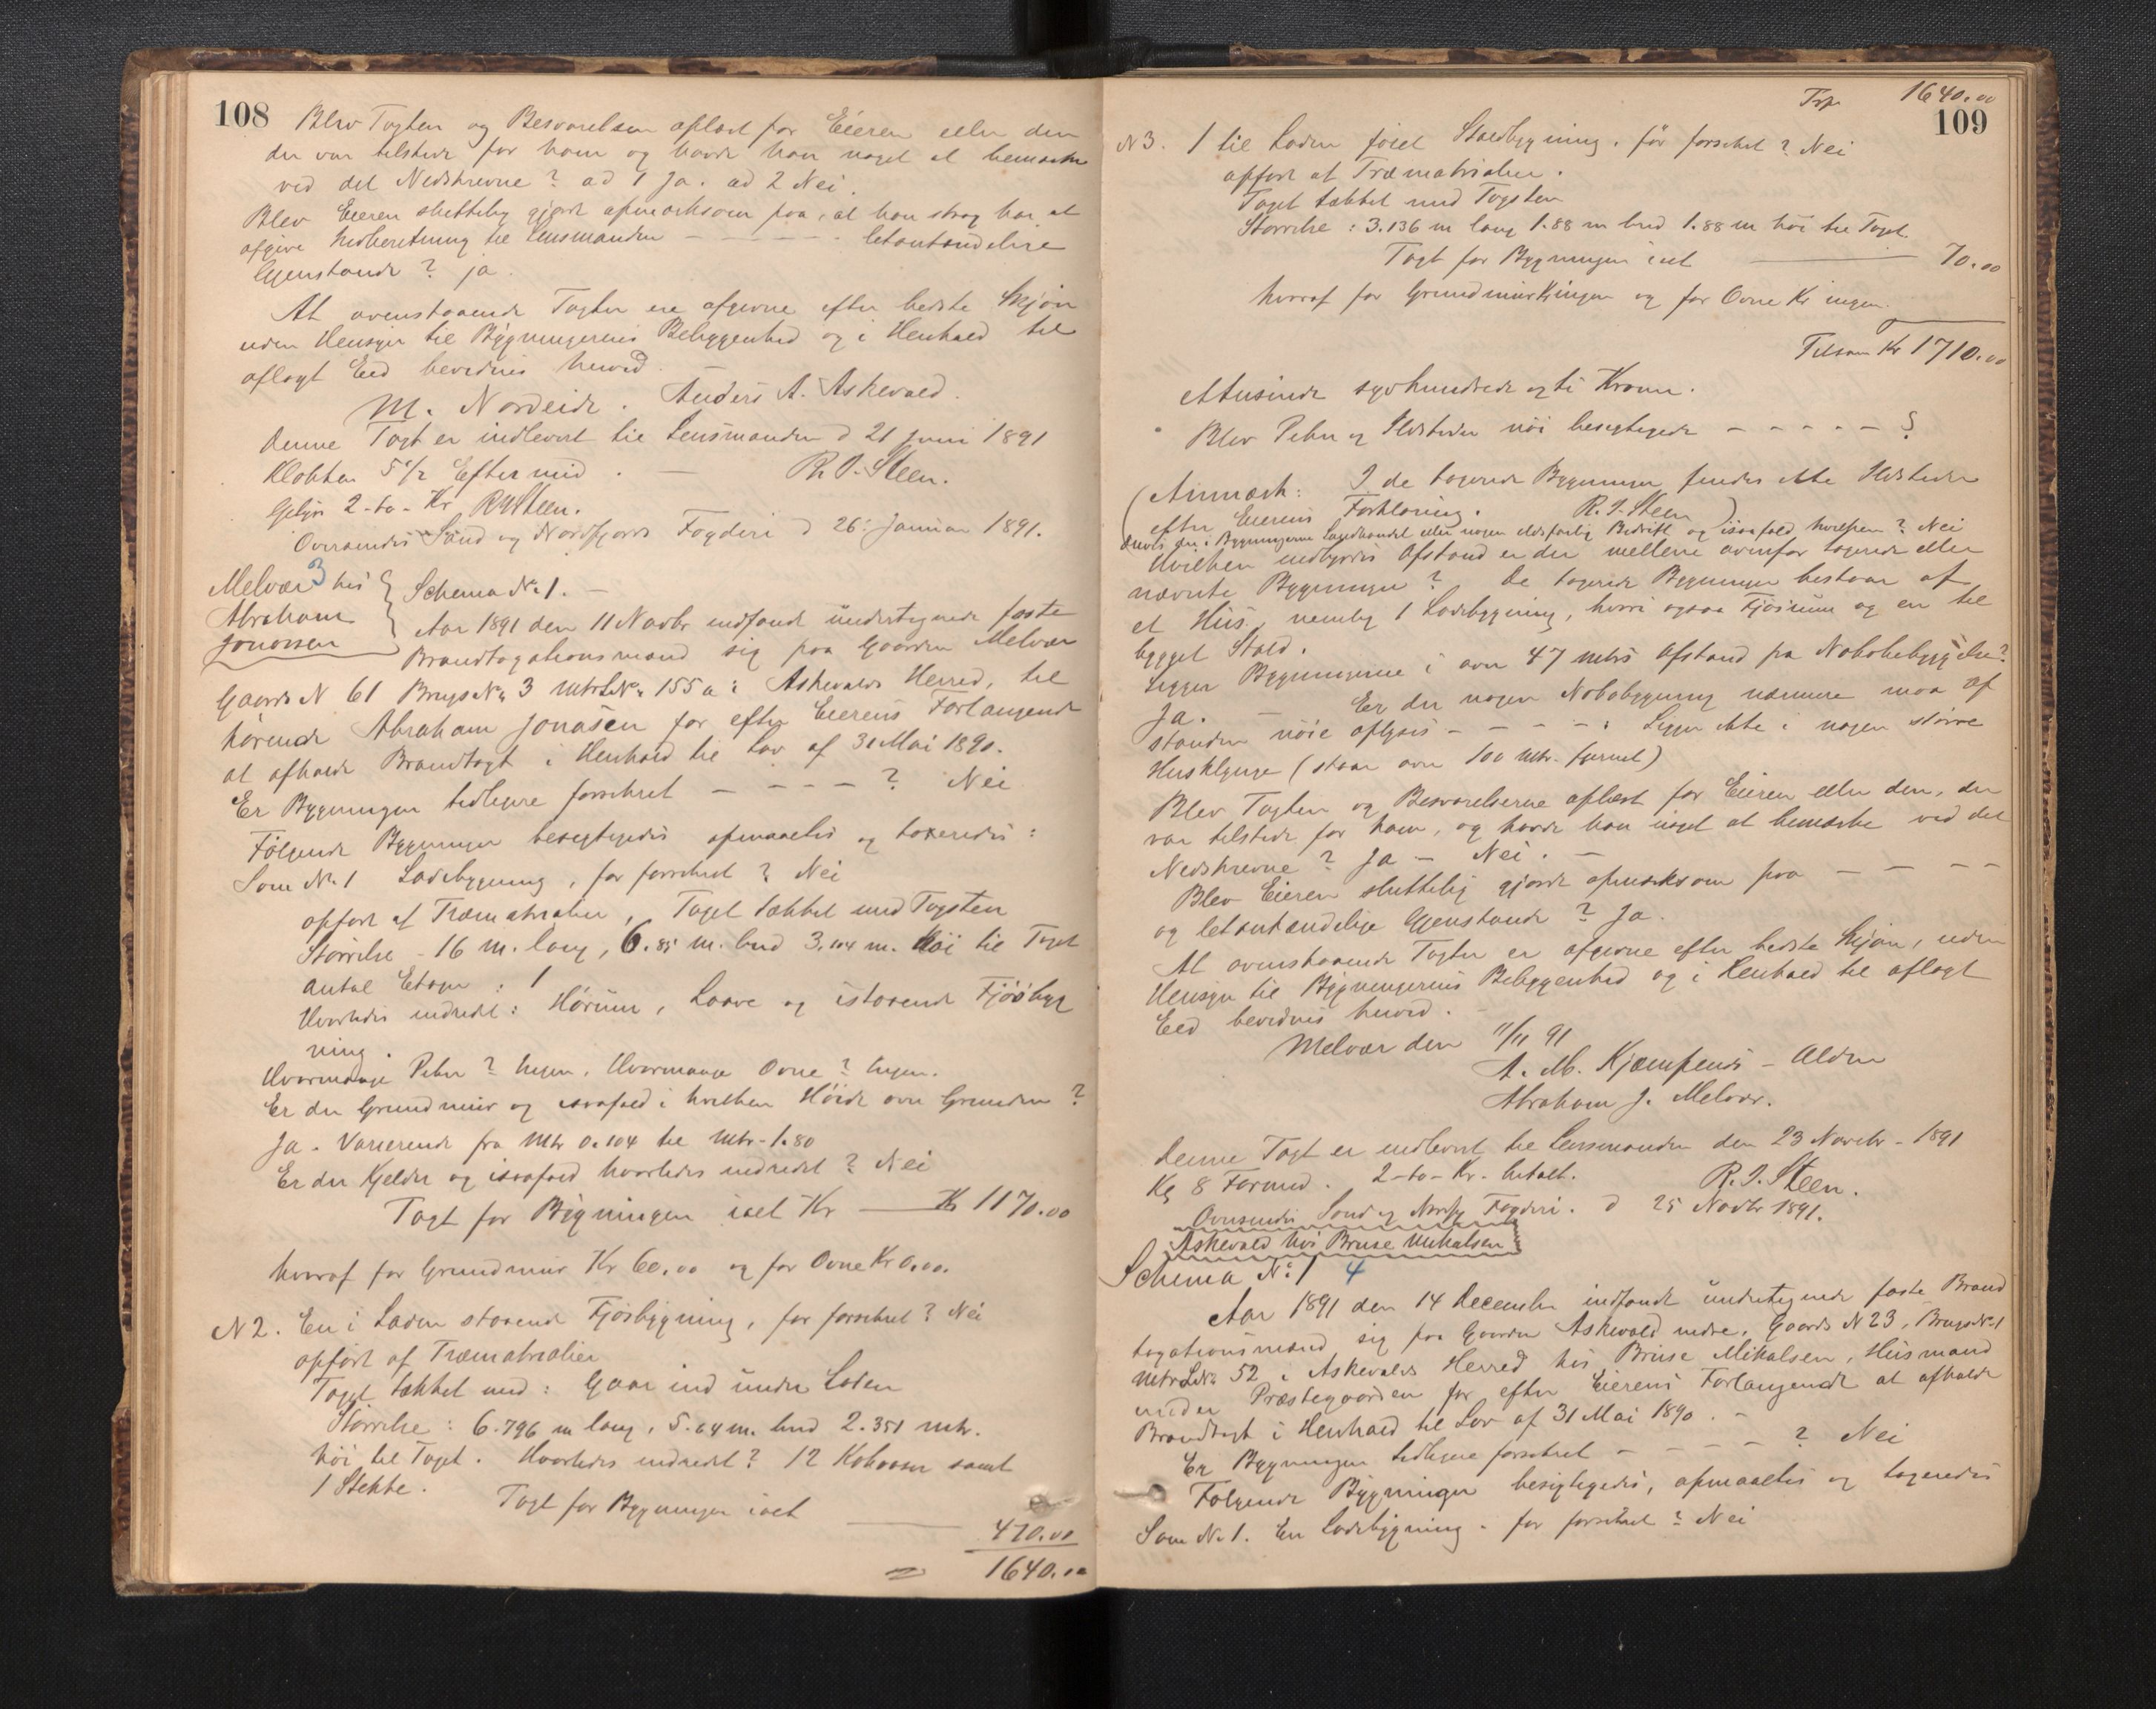 108
Blev Taxten og Besvarelsen oplæst for Eieren eller den
der var tilstede for ham og havde han noget at bemærke
ved det Nedskrevne? ad 1 Ja. ad 2 Nei.
Blev Eieren sluttelig gjort opmærksom paa, at han strax har at
afgive Indberetning til Lensmanden - - - - - letantændelige
Gjenstande? ja.
At ovenstaaende Taxter ere afgivne efter bedste Skjøn
uden Hensyn til Bygningernes Beliggenhed og i Henhold til
aflagt Eed bevidnes herved.
M. Nordeide. Anders A. Askevold.
Denne Taxt er indleveret til Lensmanden d 21 Juni 1891
Klokken 5 1/2 Eftermid. — R. J. Steen.
Gebyr 2 - to - Kr. RJSteen.
Oversendes Sønd og Nordfjords Fogderi d 26. Januar 1891.
Melvær 3 hos
Abraham
Jonassen
Schema No 1. —
Aar 1891 den 11 Novbr indfandt undertegnede faste
Brandtaxationsmænd sig paa Gaarden Melvær
Gaards N 61 Brugs No 3 Mtr L No 155 a i Askevolds Herred, til
hørende Abraham Jonasen for efter Eierens Forlangende
at afholde Brandtaxt i Henhold til Lov af 31 Mai 1890.
Er Bygningen tidligere forsikret - - - - ? Nei
Følgende Bygninger besigtigedes opmaaltes og taxeredes:
Som No 1 Ladebygning, før forsikret? Nei
opført af Træmaterialier, Taget tækket med Tagsten
Størrelse - 16 m. lang, 6.85 m. bred 3.104 m. høi til Taget
Antal Etager: 1
Hvorledes indredet: Hørum, Laave og istaaende Fjøsbyg
ning.
Hvormange Peber? Ingen. Hvormange Ovne? Ingen.
Er der Grundmur og isaafald i hvilken Høide over Grunden?
Ja. Varierende fra Mtr 0.104 til Mtr - 1.80
Er der Kjelder og isaafald hvorledes indredet? Nei
Taxt for Bygningen ialt Kr — Kr 1170.00
hvoraf for Grundmur Kr 60.00 og for Ovne Kr 0.00.
N 2. En i Laden staaende Fjøsbygning, før forsikret? Nei
opført af Træmaterialier
Taget tækket med: Gaar ind under Laden
Størrelse: 6.796 m lang, 5.64 m. bred 2.351 mtr.
høi til Taget. Hvorledes indredet? 12 Kobaaser samt
1 Stekke.
Taxt for Bygningen ialt —
470.00
= 1640.00
109
Trp. 1640.00
N 3. 1 til Laden føiet Staldbygning. før forsikret? Nei
opført af Træmaterialier.
Taget tækket med Tagsten
Størrelse: 3.136 m lang 1.88 m bred 1.88 m høi til Taget.
Taxt for Bygningen ialt — 70.00
hvoraf for Grundmur Kr ingen og for Ovne Kr ingen.
Tilsam Kr 1710.00
Ettusinde syvhundrede og ti Kroner.
Blev Peber og Ildsteder nøi besigtigede - - - - - ?
(Anmærk: I de taxerede Bygninger findes ikke Ildsteder
efter Eierens Forklaring. R. J. Steen)
Drives der i Bygningerne Landhandel eller nogen ildsfarlig Bedrift og isaafald hvilken? Nei
Hvilken indbyrdes Afstand er der mellem ovenfor taxerede eller
nævnte Bygninger? De taxerede Bygninger bestaar af
et Hus, nemlig 1 Ladebygning, hvori ogsaa Fjøsrum og en til
bygget Stald.
Ligger Bygningerne i over 47 mtrs Afstand fra Nabobebyggelse?
Ja. — Er der nogen Nabobygning nærmere maa Af
standen nøie oplyses - - - - : Ligger ikke i nogen større
Husklynge (staar over 100 Mtr. fjernet)
Blev Taxten og Besvarelserne oplæst for Eieren eller den, der
var tilstede for ham, og havde han noget at bemærke ved det
Nedskrevne? Ja - Nei. —
Blev Eieren sluttelig gjort opmærksom paa - - - -
og letantændelige Gjenstande? Ja.
At ovenstaaende Taxter er afgivne efter bedste Skjøn, uden
Hensyn til Bygningernes Beliggenhed og i Henhold til aflagt
Eed bevidnes herved.
Melvær den 11/11 91
A. M. Kjempenes - Alden
Abraham J. Melvær.
Denne Taxt er indleveret til Lensmanden den 23 Novebr - 1891
Kl 8 Formid. 2 - to - Kr. betalt. R. J. Steen.
Oversendes Sønd og Nordfj Fogderi. d 25 Novbr 1891.
Askevold hos Bruse Mikalsen
Schema No 1 4
Aar 1891 den 14 December indfandt undertegnede faste Brand
taxationsmænd sig paa Gaarden Askevold nedre, Gaards N 23, Brugs No 1
Mtr L No 52 i Askevolds Herred hos Bruse Mikalsen, Husmand
under Præstegaarden for efter Eierens Forlangende at afholde
Brandtaxt i Henhold til Lov af 31 Mai 1890. —
Er Bygningen tidligere forsikret - - - - ? Nei
Følgende Bygninger besigtigedes, opmaaltes og taxeredes
Som No 1. En Ladebygning. før forsikret? Nei